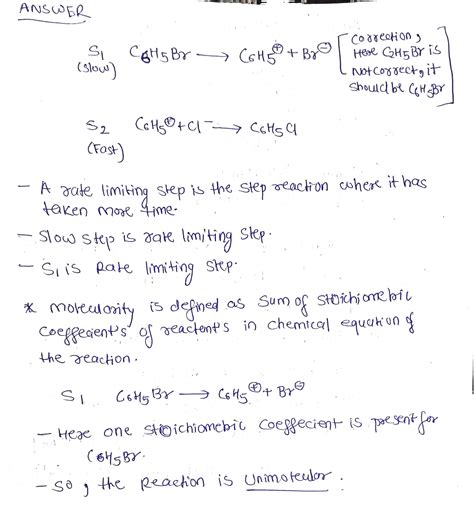 ANSWER
S1 C6H5Br ⟶ C6H5⊕ + Br⊖ [Correction,
(slow) Here C2H5Br is
Not correct, it
should be C6H5Br
S2 C6H5⊕ + Cl⁻ ⟶ C6H5Cl
(Fast)
– A rate limiting step is the step reaction where it has
taken more time.
– Slow step is rate limiting step.
– S1 is Rate limiting step.
* Molecularity is defined as sum of stoichiometric
coeffecient's of reactant's in chemical equation of
the reaction.
S1 C6H5Br ⟶ C6H5⊕ + Br⊖
– Here one stoichiometric coeffecient is present for
C6H5Br.
– So, the Reaction is Unimolecular.